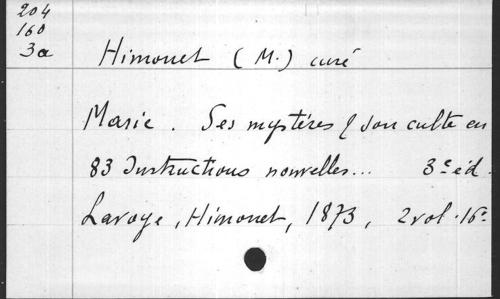 204
160
3a
Himonet (M.) curé
Marie. Ses mystères & son culte en
83 Instructions nouvelles... 3e éd.
Lavoye, Himonet, 1873, 2 vol. 16°